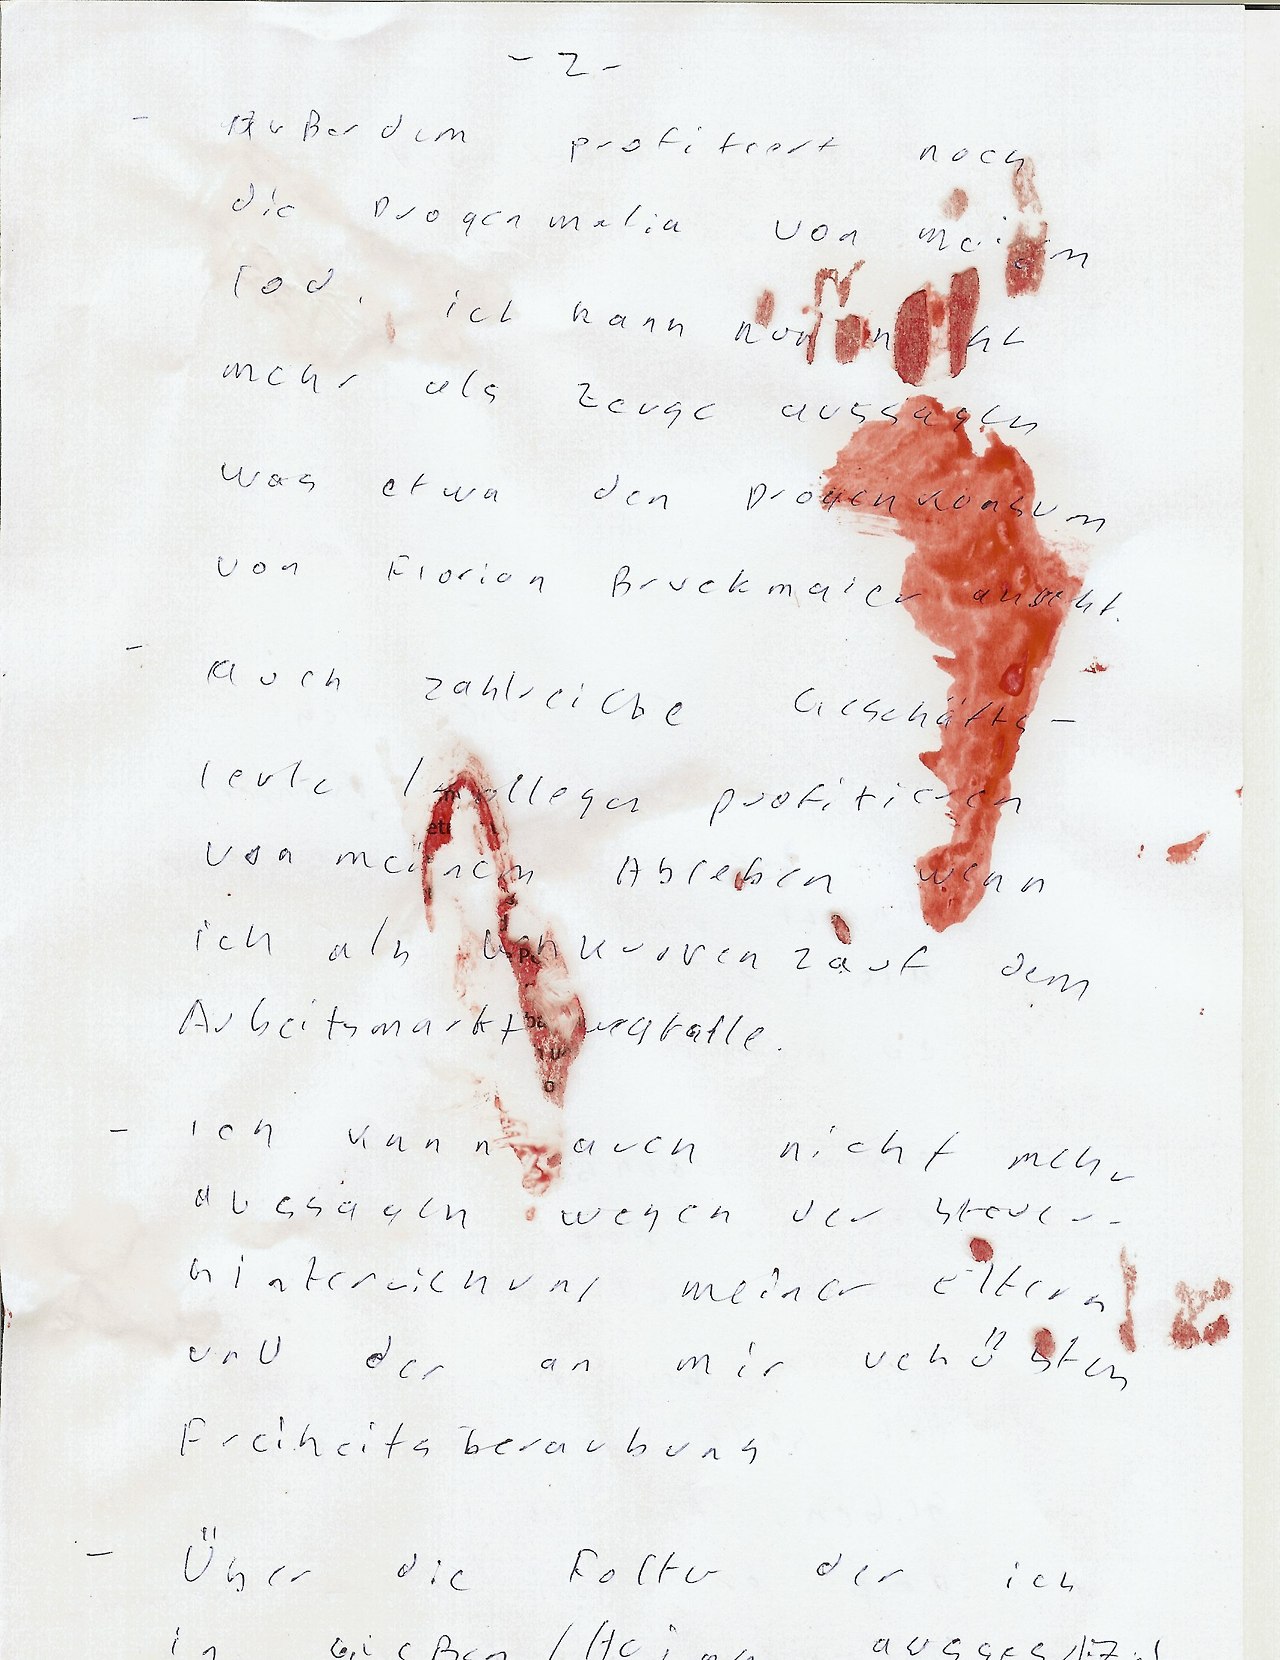 - 2 -
- Außerdem profitiert noch
die Drogenmafia von meinem
Tod. ich kann nun nicht
mehr als Zeuge aussagen
was etwa den Drogenkonsum
von Florian Bruckmaier angeht.
- Auch zahlreiche Geschäfts-
leute / Kollegen profitieren
von meinem Ableben wenn
ich als Konkurrenz auf dem
Arbeitsmarkt wegfalle.
- ich kann auch nicht mehr
aussagen wegen der Steuer-
hinterziehung meiner Eltern
und der an mir verübten
Freiheitsberaubung
- Über die Folter der ich
in Gießen / ausgesetzt